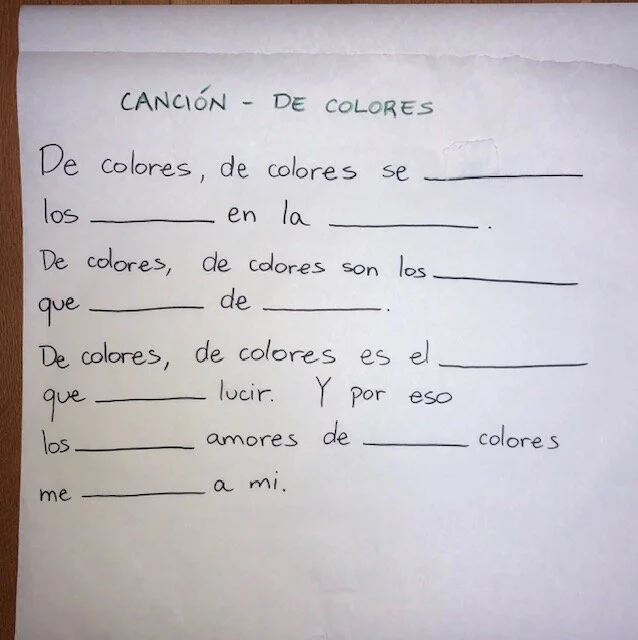 CANCIÓN - DE COLORES
De colores, de colores se ________
los ________ en la ________.
De colores, de colores son los ________
que ________ de ________.
De colores, de colores es el ________
que ________ lucir. Y por eso
los ________ amores de ________ colores
me ________ a mi.